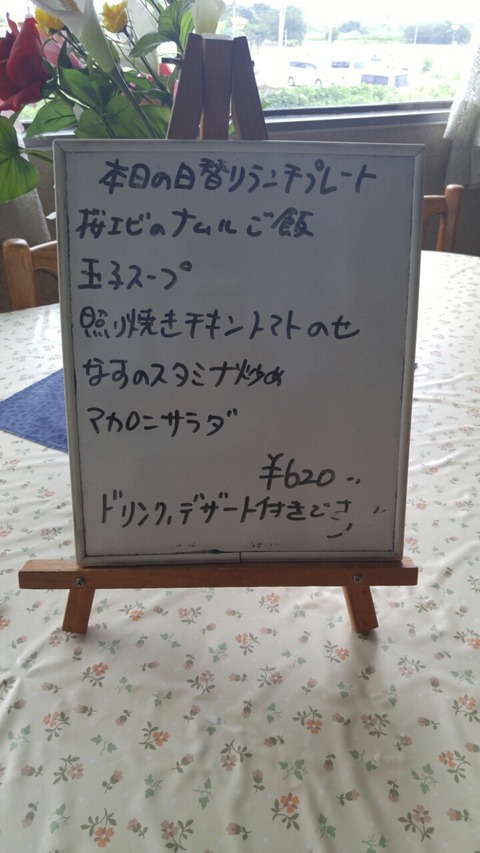 本日の日替りランチプレート
桜エビのナムルご飯
玉子スープ
照り焼きチキントマトのせ
なすのスタミナ炒め
マカロニサラダ
¥620
ドリンク、デザート付きです